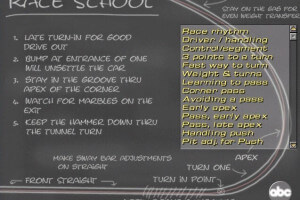 RACE SCHOOL
STAY ON THE GAS FOR
EVEN WEIGHT TRANSFER
1. LATE TURN-IN FOR GOOD
DRIVE OUT
2. BUMP AT ENTRANCE OF ONE
WILL UNSETTLE THE CAR
3. STAY IN THE GROOVE THRU
APEX OF THE CORNER
4. WATCH FOR MARBLES ON THE
EXIT
5. KEEP THE HAMMER DOWN THRU
THE TUNNEL TURN
Race rhythm
Driver / handling
Control/segment
3 points to a turn
Fast way to turn
Weight & turns
Learning to pass
Corner pass
Avoiding a pass
Early apex
Pass, early apex
Pass, late apex
Handling push
Pit adj, for Push
MAKE SWAY BAR ADJUSTMENTS
ON STRAIGHT
APEX
TURN ONE
FRONT STRAIGHT
TURN IN POINT
abc